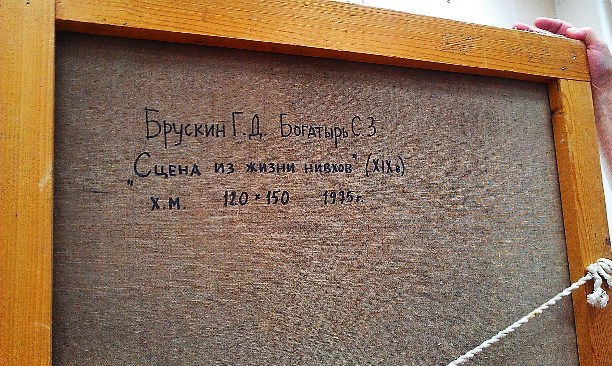 Брускин Г.Д. Богатырь С.З.
"Сцена из жизни нивхов" (XIXв)
х.м. 120×150 1975г.